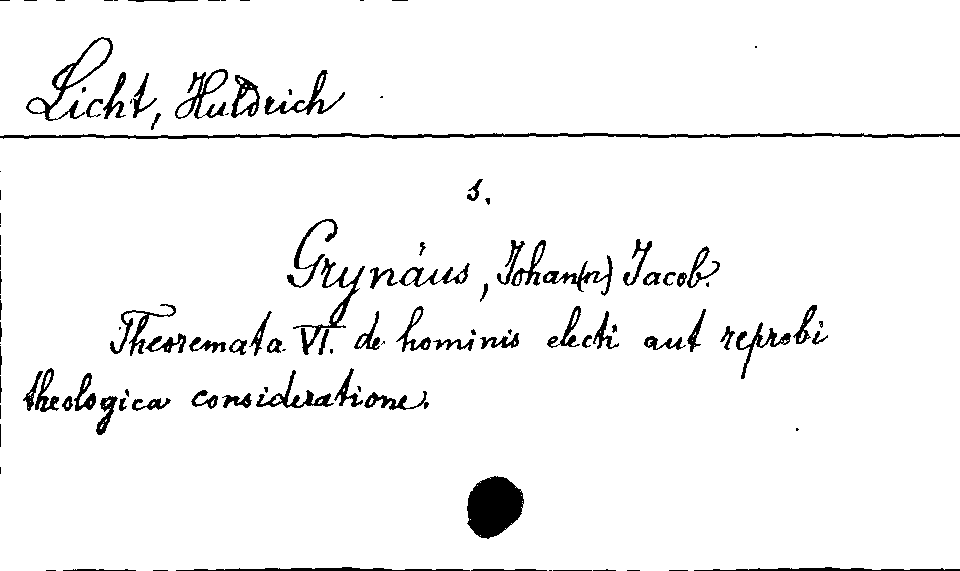 Licht, Huldrich
s.
Grynäus, Johan(n) Jacob.
Theoremata VI. de hominis electi aut reprobi
theologica consideratione.